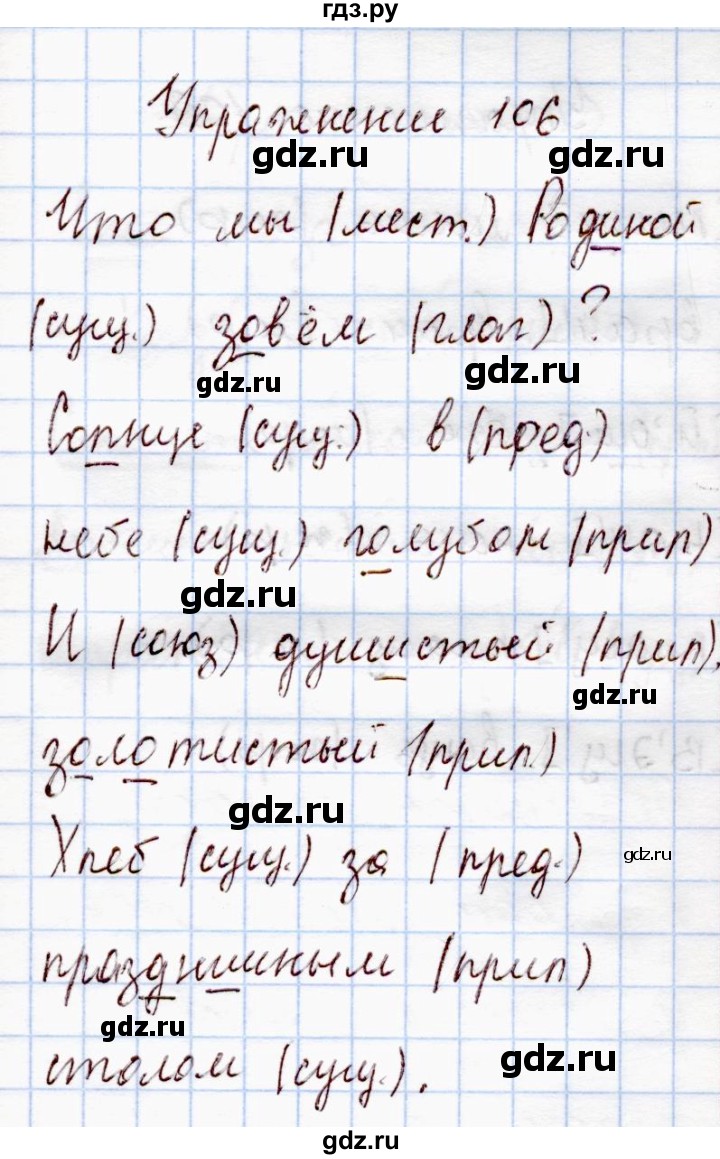 гдз.ру
Упражнение 106
gdz.ru gdz.ru
Что мы (мест.) Родиной
(сущ.) зовём (глаг)?
gdz.ru gdz.ru
Солнце (сущ.) в (пред)
небе (сущ.) голубом (прил)
gdz.ru gdz.ru
И (союз) душистый (прил),
gdz.ru
золотистый (прил.)
gdz.ru
Хлеб (сущ.) за (пред.)
gdz.ru
праздничным (прил)
gdz.ru
столом (сущ.).
gdz.ru
gdz.ru